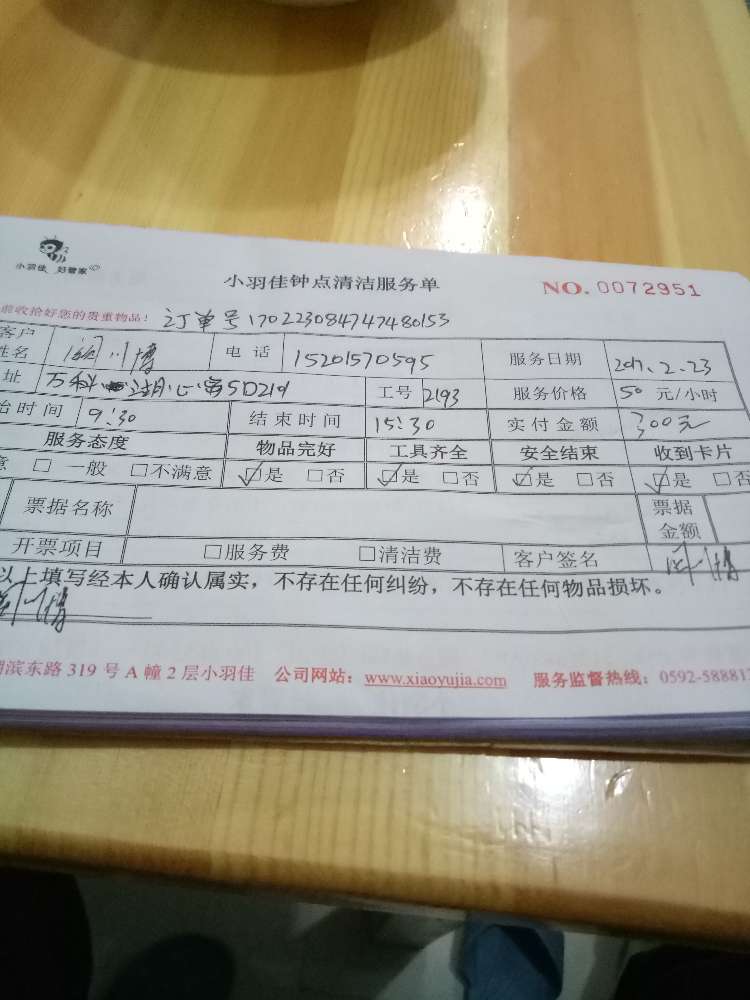 小羽佳 好管家
小羽佳钟点清洁服务单 NO. 0072951
前收拾好您的贵重物品! 订单号 170223084747480153
客户姓名 川博 电话 15201570595 服务日期 2017.2.23
址 万科 湖心岛 5D219 工号 2193 服务价格 50 元/小时
始时间 9:30 结束时间 15:30 实付金额 300元
服务态度 物品完好 工具齐全 安全结束 收到卡片
意 □ 一般 □不满意 ☑是 □否 ☑是 □否 ☑是 □否 ☑是 □否
票据名称 票据金额
开票项目 □服务费 □清洁费 客户签名
以上填写经本人确认属实，不存在任何纠纷，不存在任何物品损坏。
湖滨东路 319 号 A 幢 2 层小羽佳 公司网站：www.xiaoyujia.com 服务监督热线：0592-58881